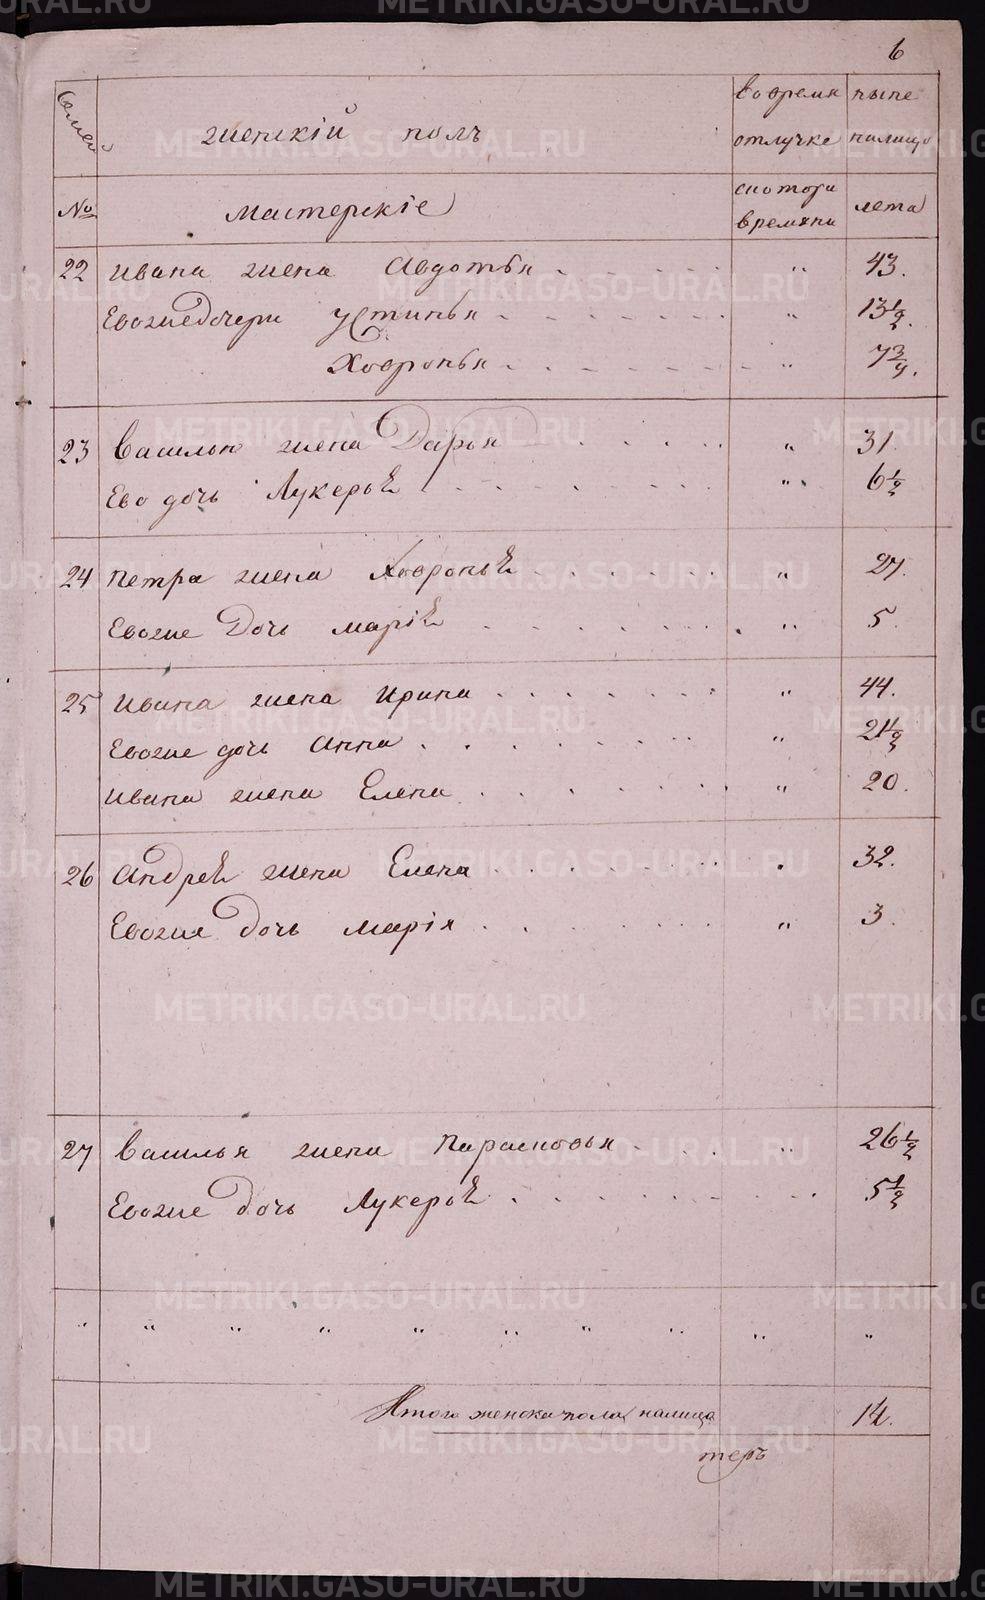 6
семей женскій полъ во время ныне
отлучке налицо
№ мастерскіе с котораго времяни лета
22 Ивана жена Авдотья " 43.
Евожедочери Устинья " 13 1/2.
Ховронья " 7 3/4.
23 Василья жена Дарья " 31
Ево дочь Лукерья " 6 1/2
24 Петра жена Ховронья " 27.
Евоже дочь Марія " 5.
25 Ивана жена Ирина " 44.
Евоже дочь Анна " 21 1/2
Ивана жена Елена " 20.
26 Андрея жена Елена " 32.
Евоже дочь Марія " 3.
27 Василья жена Парасковья " 26 1/2
Евоже дочь Лукерья 5 1/2
" " " " " " " " " "
Итого женска пола налицо 14.
теръ
METRIKI.GASO-URAL.RU